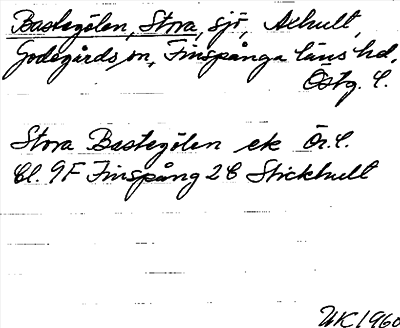 Bastegölen, Stora, sjö, Axhult,
Godegårds sn, Finspånga läns hd,
Östg. l.
Stora Bastegölen ek Ör. l.
Bl. 9F Finspång 2C Stickhult
UK 1960